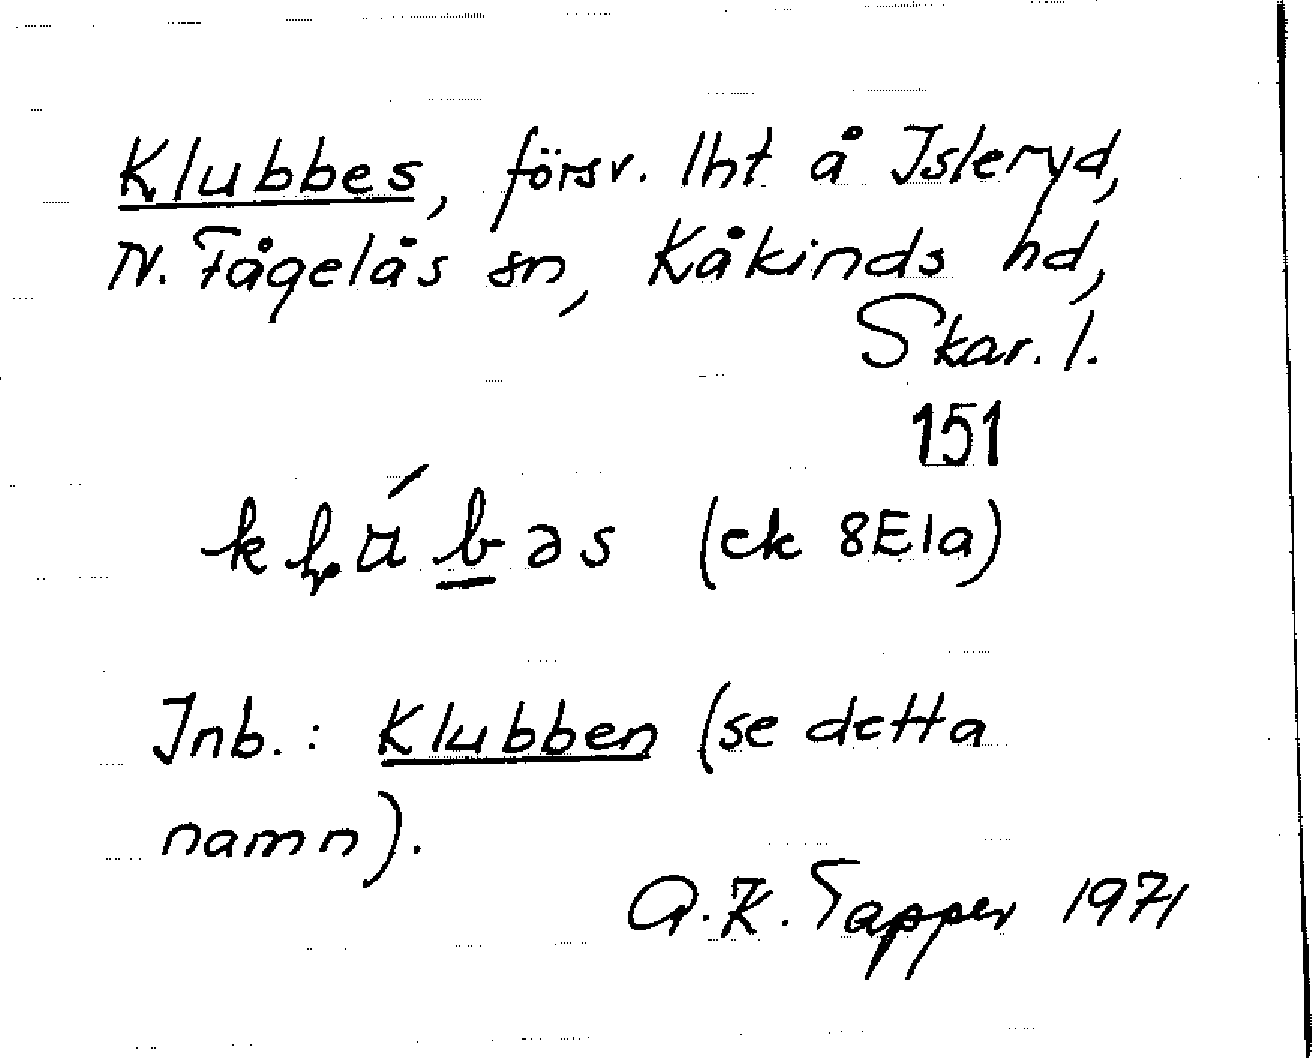 Klubbes, försv. lht å Isleryd,
N. Fågelås sn, Kåkinds hd,
Skar. l.
151
(ek 8E1a)
Inb.: Klubben (se detta
namn).
A.K. Tapper 1971